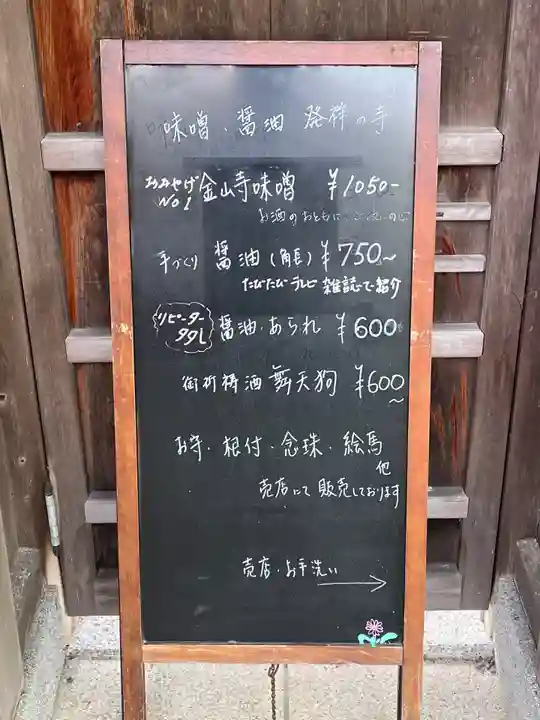 味噌、醤油 発祥の寺
おみやげNo1 金山寺味噌 ¥1050-
お酒のおともに
手づくり 醤油(角長) ¥750~
たびたびテレビ 雑誌で紹介
リピーター多し 醤油・あられ ¥600
御祈祷酒 舞天狗 ¥600~
お守・根付・念珠・絵馬 他
売店にて販売しております
売店・お手洗い →